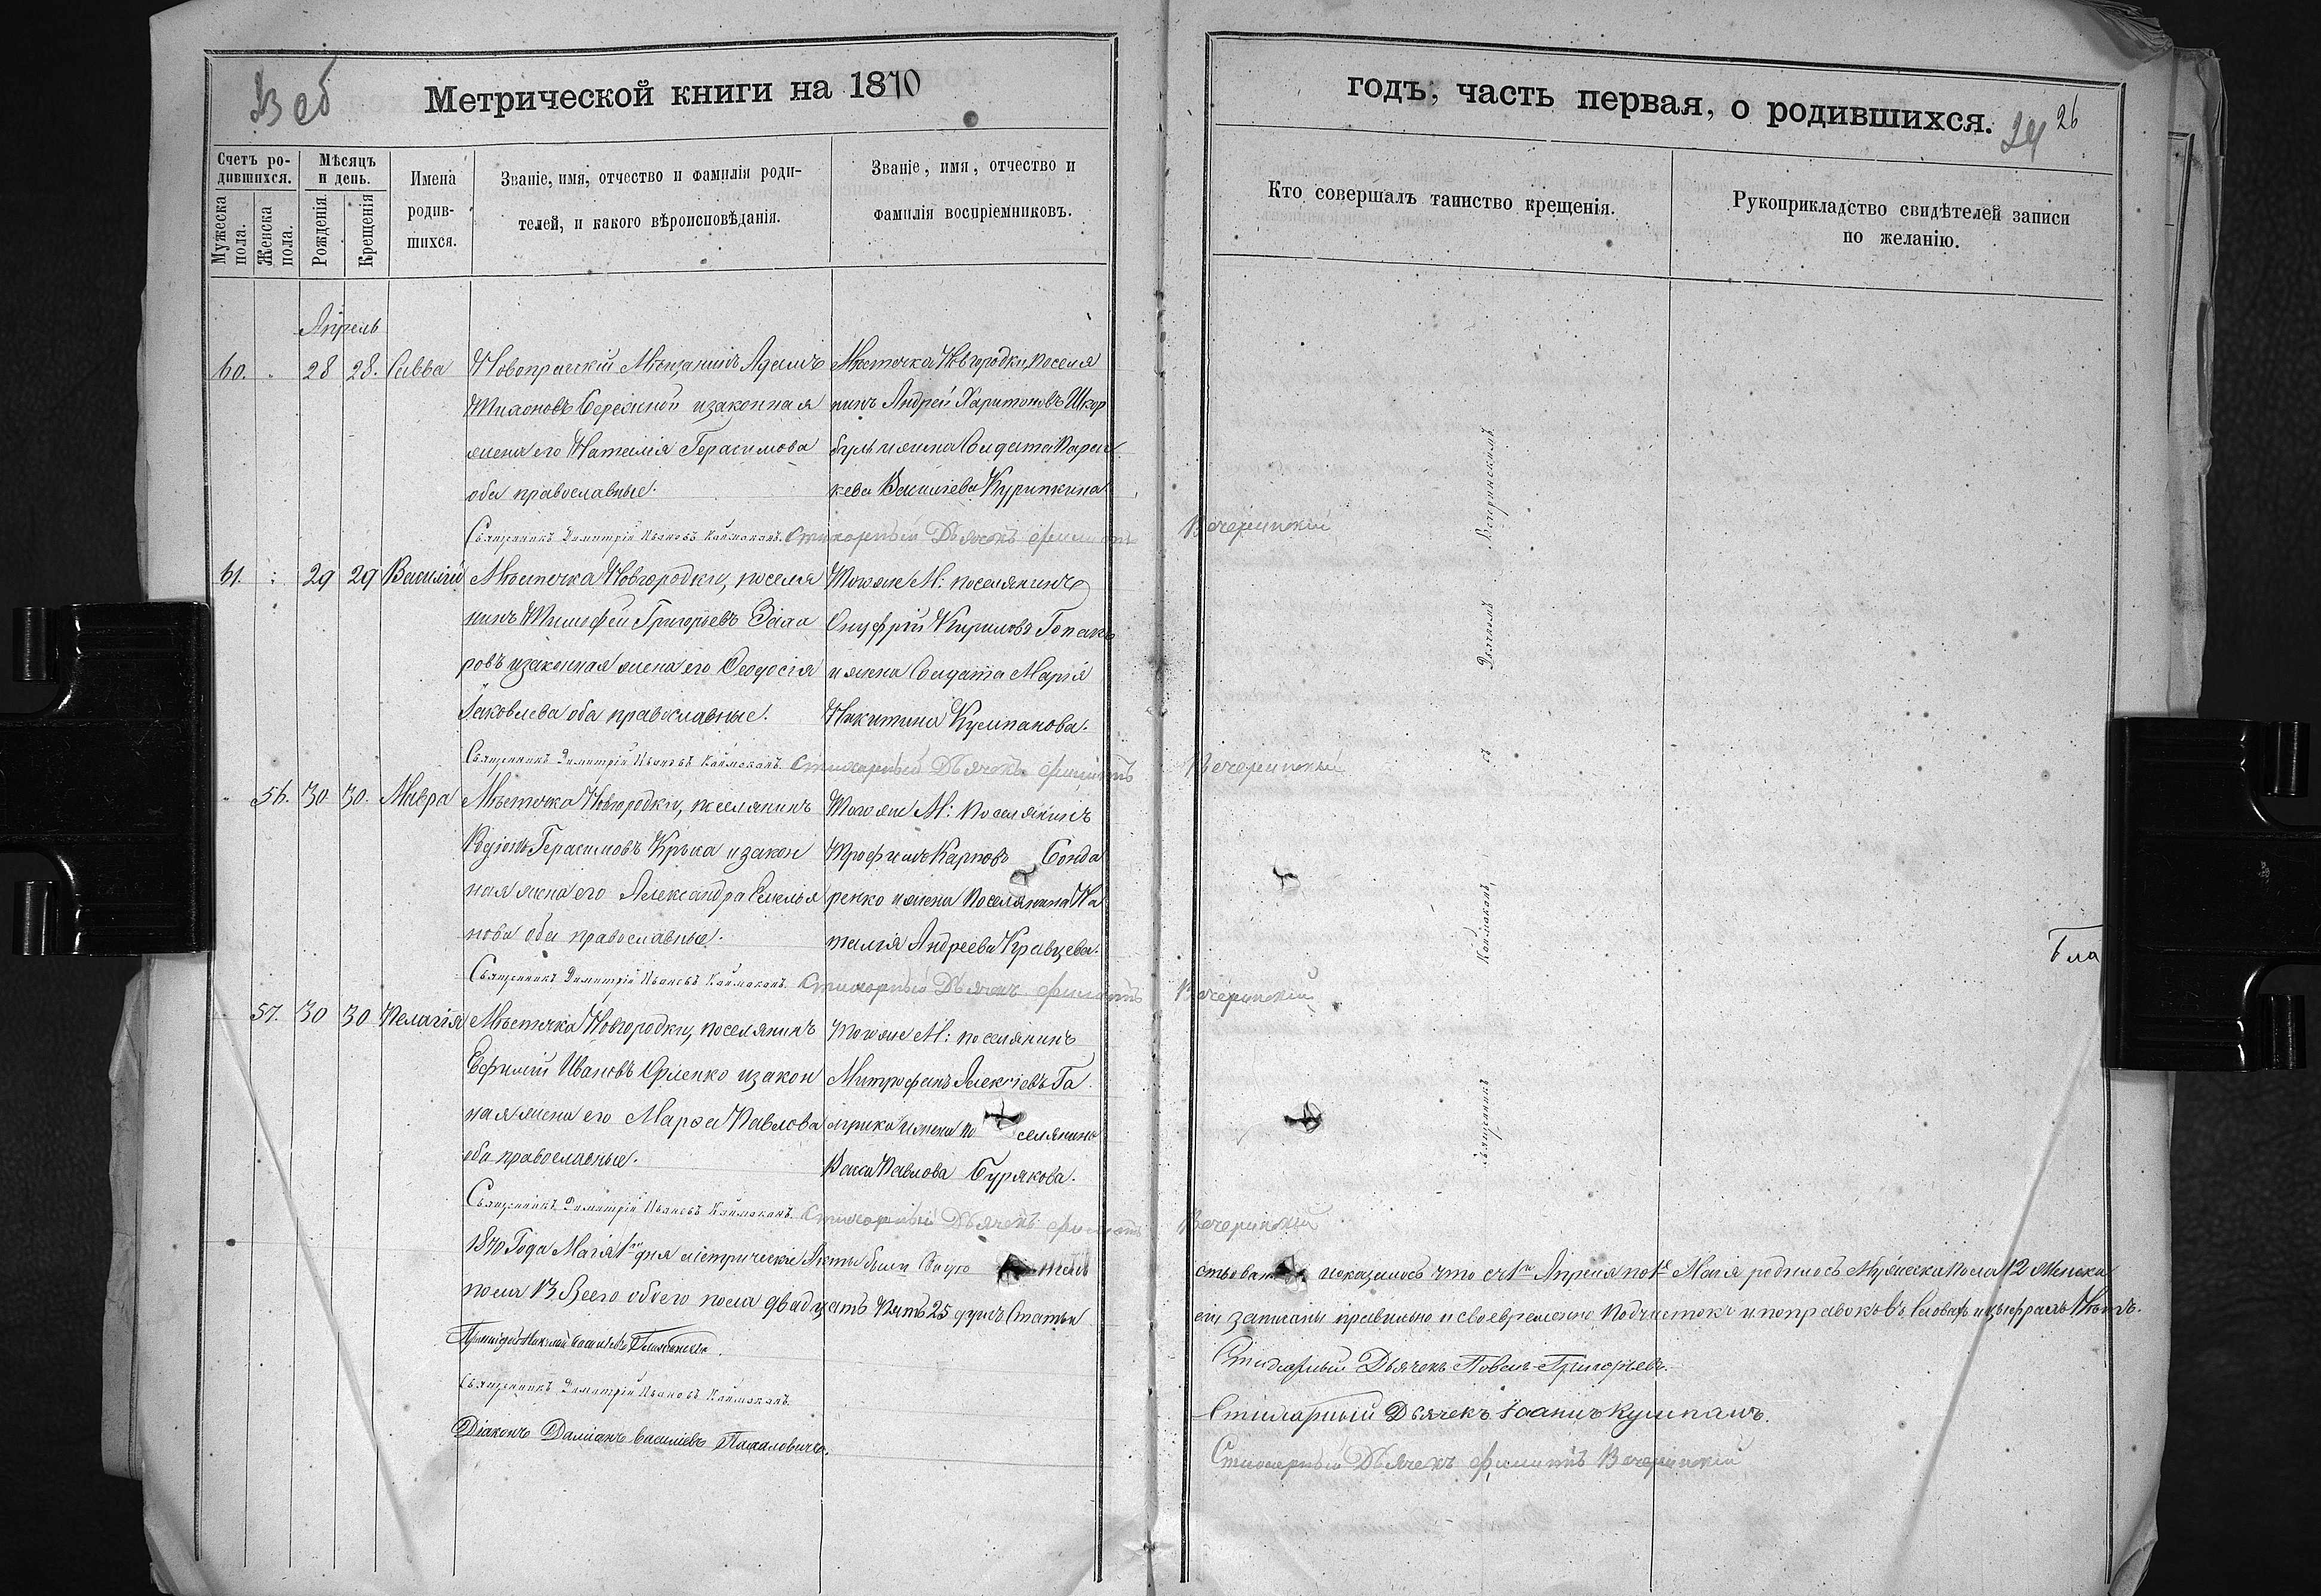 Метрической книги на 1870
годъ, часть первая, о родившихся.
24 26
Счетъ родившихся.
Мѣсяцъ и день.
Мужеска пола.
Женска пола.
Рожденія
Крещенія
Имена родившихся.
Званіе, имя, отчество и фамилія родителей, и какого вѣроисповѣданія.
Званіе, имя, отчество и фамилія воспріемниковъ.
Кто совершалъ таинство крещенія.
Рукоприкладство свидѣтелей записи по желанію.
Апрель
60. 28 28. Савва
Новопражскій Мѣщанинъ Адамъ
Тихоновъ Бережной и законная
жена его Наталія Герасимова
оба православные.
Мѣстечка Новгородки, поселя
нинъ Андрей Харитоновъ Шкор
буль и жена Солдата Парас
кева Василіева Курипкина
Священникъ Димитрій Ивановъ Каймаканъ. Стихарный Дьячекъ Филиппъ Вечеринскій
61. 29 29 Василій
Мѣстечка Новгородки, поселя
нинъ Тимофей Григорьевъ
ровъ и законная жена его Феодосія
Іаковлева оба православные.
Тогоже М: поселянинъ
Онуфрій Кириловъ Гопакъ
и жена Солдата Марія
Никитина Кулпакова.
Священникъ Димитрій Ивановъ Каймаканъ. Стихарный Дьячекъ Филиппъ Вечеринскій
56. 30 30. Мавра
Мѣстечка Новгородки, поселянинъ
Родіонъ Герасимовъ Крыса и закон
ная жена его Александра Емелья
нова оба православные.
Тогоже М: Поселянинъ
Трофимъ Карповъ Бонда
ренко и жена Поселянина На
талія Андреева Кравцева.
Бла
Священникъ Димитрій Ивановъ Каймаканъ. Стихарный Дьячекъ Филиппъ Вечеринскій
57. 30 30 Пелагія
Мѣстечка Новгородки, поселянинъ
Ефимій Ивановъ и закон
ная жена его Марфа Павлова
оба православные.
Тогоже М: поселянинъ
Митрофанъ Алексіевъ Га
и жена по селянина
Васса Павлова Бурякова.
Священникъ Димитрій Ивановъ Каймаканъ. Стихарный Дьячекъ Филиппъ Вечеринскій
Священникъ Каймаканъ, съ Дьячкомъ Вечеринскимъ
1870 Года Маія 1го дня метрическіе Акты были показалось что съ 1го Апреля по 1е Маія родилось Мужеска пола 12 Женска
пола 13 Всего обоего пола двадцать пять 25 душъ Статьи сіи записаны правильно и своевременно Подчистокъ и поправокъ въ Словахъ и цыфрахъ Нѣтъ.
Стихарный Дьячекъ Павелъ Григорьевъ.
Священникъ Димитрій Ивановъ Каймаканъ.
Стихарный Дьячекъ Іоаннъ Кулпакъ.
Діаконъ Даміанъ Василіевъ
Стихарный Дьячекъ Филиппъ Вечеринскій